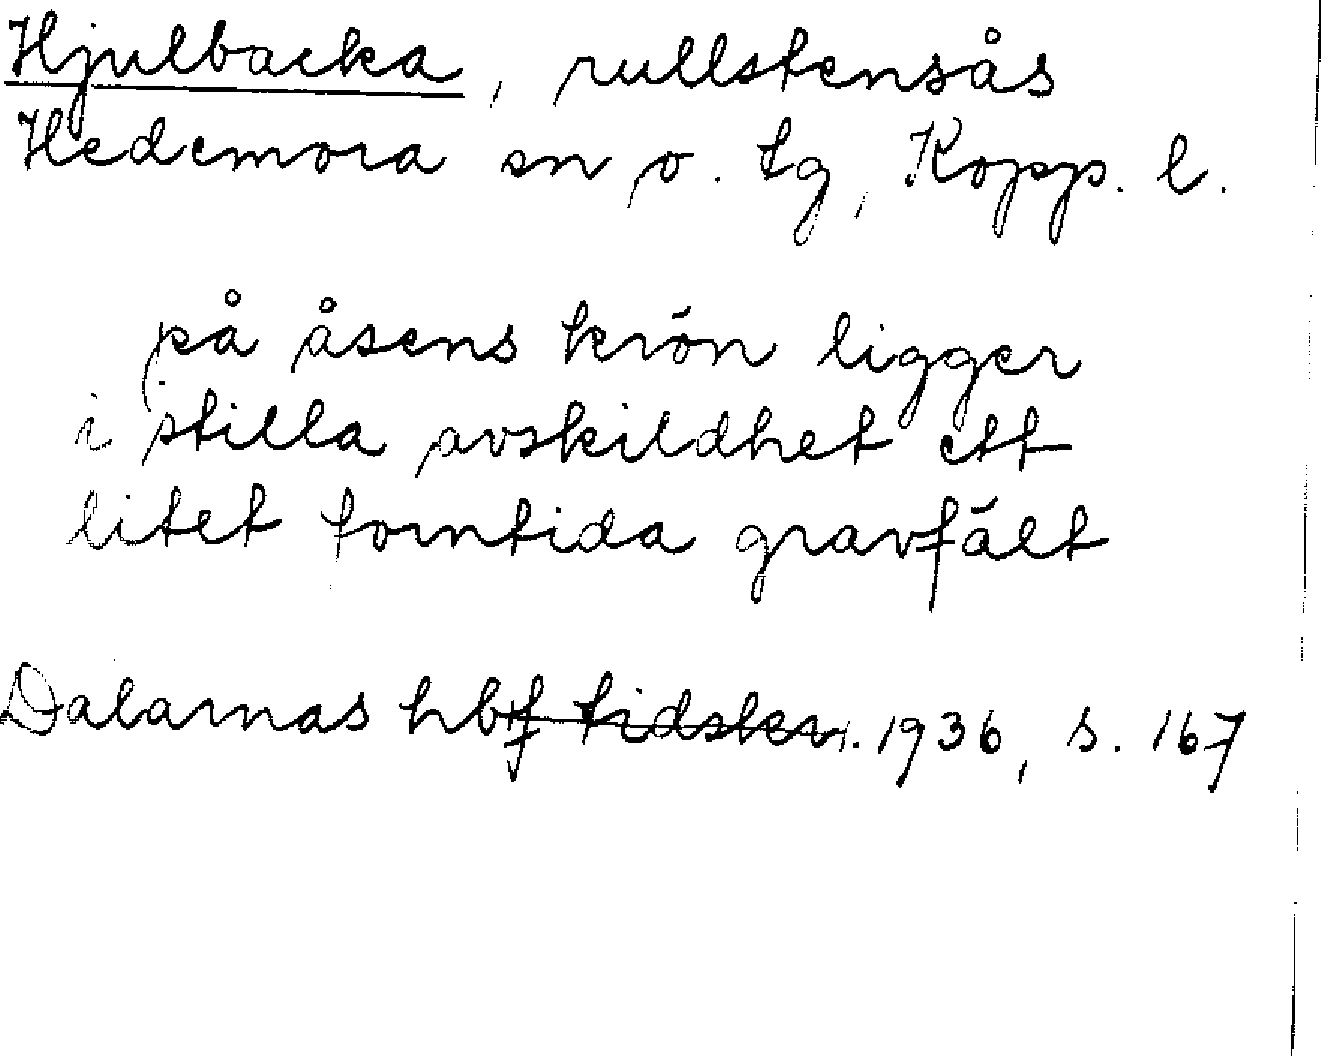 Hjulbacka, rullstensås
Hedemora sn o. tg, Kopp. l.
på åsens krön ligger
i stilla avskildhet ett
litet forntida gravfält
Dalarnas hbf tidskr. 1936, s. 167